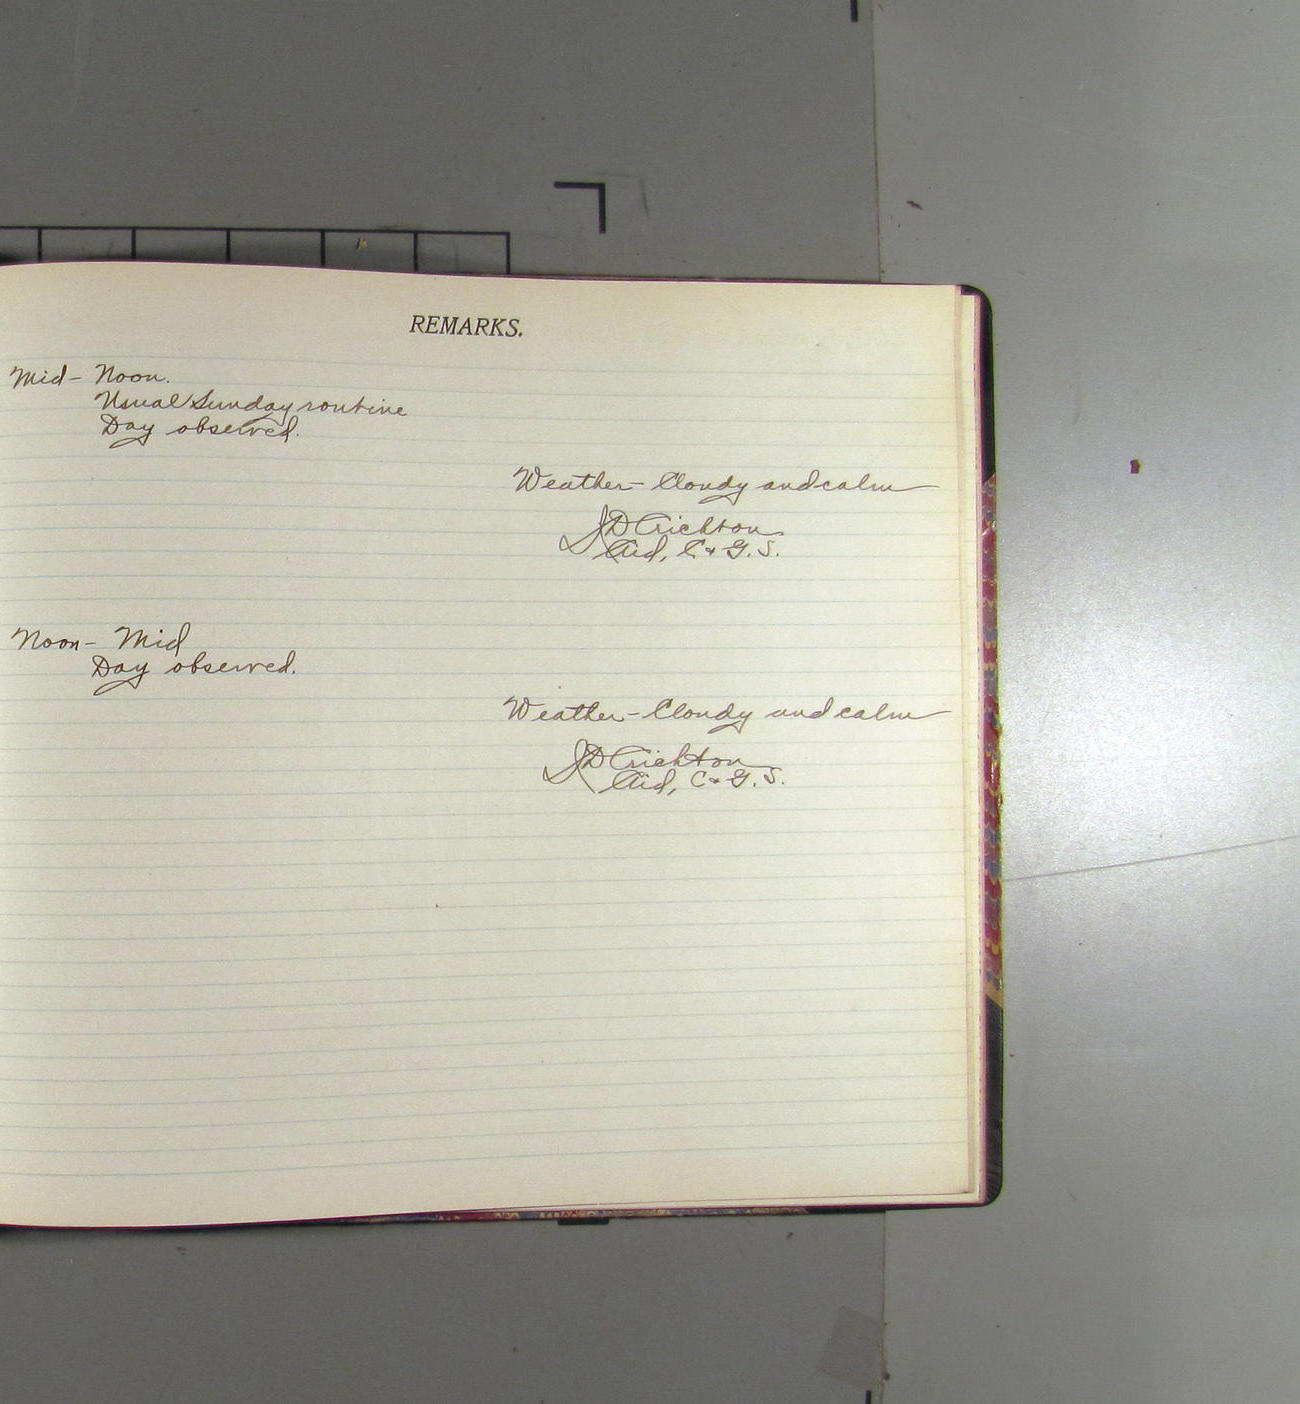 REMARKS.
Mid- Noon.
Usual Sunday routine
Day observed.
Weather- Cloudy and calm
JD Crichton
Aid, C & G. S.
Noon- Mid
Day observed.
Weather- Cloudy and calm
JD Crichton
Aid, C & G. S.